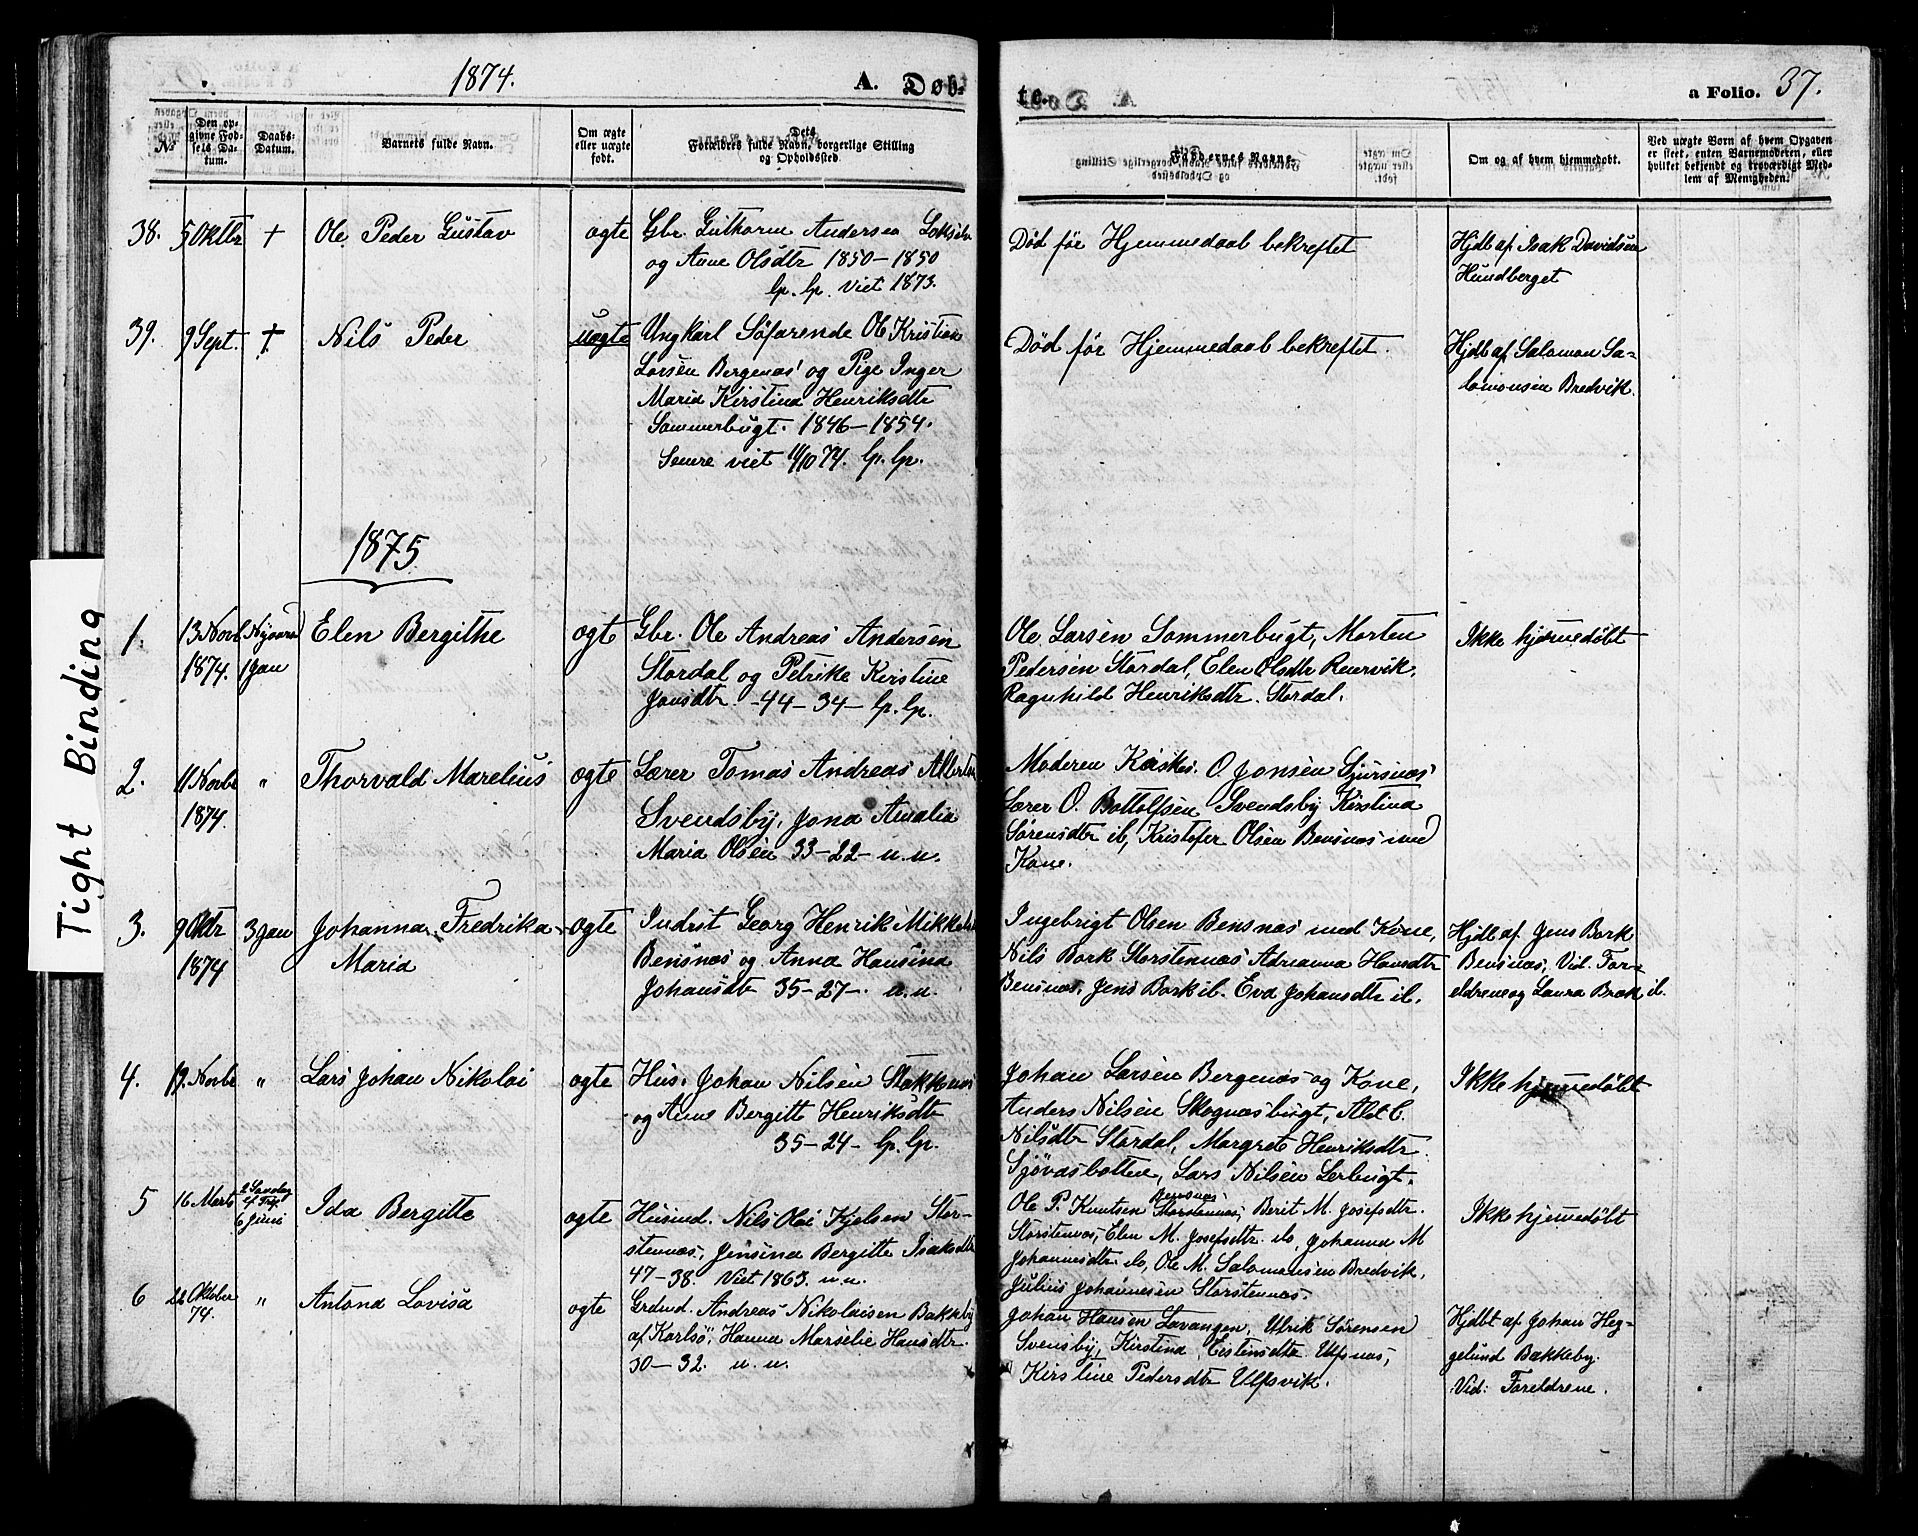 1874.
A. Døb-
te.
a Folio. 37.
No
Den op-
givne Fød-
sels Da-
tum.
Daabs-
Datum.
Barnets fulde Navn.
Om ægte
eller uægte
født.
Dets
Forældres fulde Navn, borgerlige Stilling
og Opholdssted.
Faddernes Navne.
Om og af hvem hjemmedøbt.
Ved uægte Børn af hvem Opgaven
er skeet, enten Barnemoderen, eller
hvilket bekjendt og troværdigt Med-
lem af Menigheden.
38. 5 Oktbr + Ole Peder Gustav ægte
Gbr. Guttorm Andersen
og Anne Olsdtr 1850-1850
lp. lp. Viet 1873.
Død før Hjemmedaab bekreftet
Hjdb af Isak Davidsen
Hundberget
39. 9 Sept. + Nils Peder uægte
Ungkarl Søfarende Ole Kristian
Larsen Bergenæs og Pige Inger
Maria Kirstina Henriksdtr
Sommerbugt. 1846-1854.
Senere viet 11/10 74. lp. lp.
Død før Hjemmedaab bekreftet.
Hjdb af Salomon Sa-
lomonsen Bredvik.
1875
1 13 Novb 1874. Nyaars 1 Jan Elen Bergithe ægte
Gbr. Ole Andreas Andersen
Stordal og Petrike Kirstine
Jonsdtr 44-34- lp. lp.
Ole Larsen Sommerbugt, Morten
Pedersen Stordal, Elen Olsdtr Renrvik,
Ragnhild Henriksdtr. Stordal.
Ikke hjemmedøbt
2. 11 Novbr 1874. " Thorvald Marelius ægte
Lærer Tomas Andreas
Svendsby, Jona Amalia
Maria Olsen 33-22- n.n.
Moderen Kirkes. O Jonsen Sjursnæs
Lærer O. Bottolfsen Svendsby Kirstina
Sørensdtr ib, Kristofer Olsen Bensnæs med
Kone.
3. 9 Oktr 1874 3 Jan Johanna Fredrika
Maria ægte
Indrst Georg Henrik
Bensnæs og Anna Hansina
Johansdtr 35-27-. n.n.
Ingebrigt Olsen Bensnæs med Kone,
Nils Bork Storstennæs Adrianna Hansdtr
Bensnæs, Jens Bork ib. Eva Johansdtr ib.
Hjdb af Jens Bork
Bensnæs, Vid. For-
eldrene og Laura Bræk ib.
4. 19. Novbr " Lars Johan Nikolai ægte
Hus. Johan Nilsen Stakkenæs
og Anne Bergitte Henriksdtr
35-24- lp. lp.
Johan Larsen Bergenæs og Kone,
Anders Nilsen Skognæsbugt,
Nilsdtr Stordal, Margrete Henriksdtr.
Sjøvasbotten, Lars Nilsen Lerbugt.
Ikke hjemmedøbt
5 16 Marts 2 Søndag ef Tref 6 Juni Ida Bergitte ægte
Husmd. Nils Olai Kjelsen Stor-
stennæs, Jensina Bergitte Isaksdtr
47-38. Viet 1863. n.n.
Bensnæs
Ole P. Knutsen Storstennæs, Berit M. Josefsdtr.
Storstennæs, Elen M. Josefsdtr. do, Johanna M
Johannesdtr do, Ole M. Salomonsen Bredvik,
Julius Johannesen Storstennæs.
Ikke hjemmedøbt
6 22 Oktober 74. " Antona Lovisa ægte
Grdmd. Andreas Nikolaisen Bakkeby
af Karlsø, Hanna Marselie Hansdtr.
30-32. n.n.
Johan Hansen Lavangen, Ulrik Sørensen
Svensby, Kirstina Eistensdtr. Ulfsnæs,
Kirstine Pedersdtr Ulfsvik.
Hjdbt af Johan Heg-
gelund Bakkeby.
Vid: Foreldrene.
Tight Binding